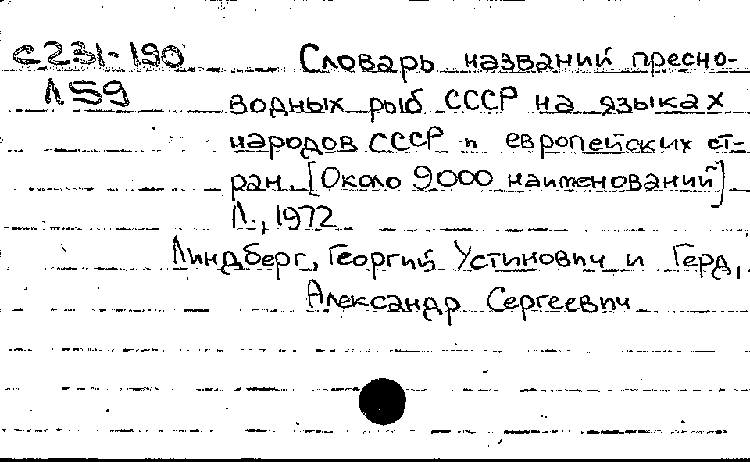 с231-190 Словарь названий пресно-
Л59 водных рыб СССР на языках
народов СССР и европейских ст-
ран. [Около 9000 наименований]
Л., 1972
Линдберг, Георгий Устинович и Герд,
Александр Сергеевич